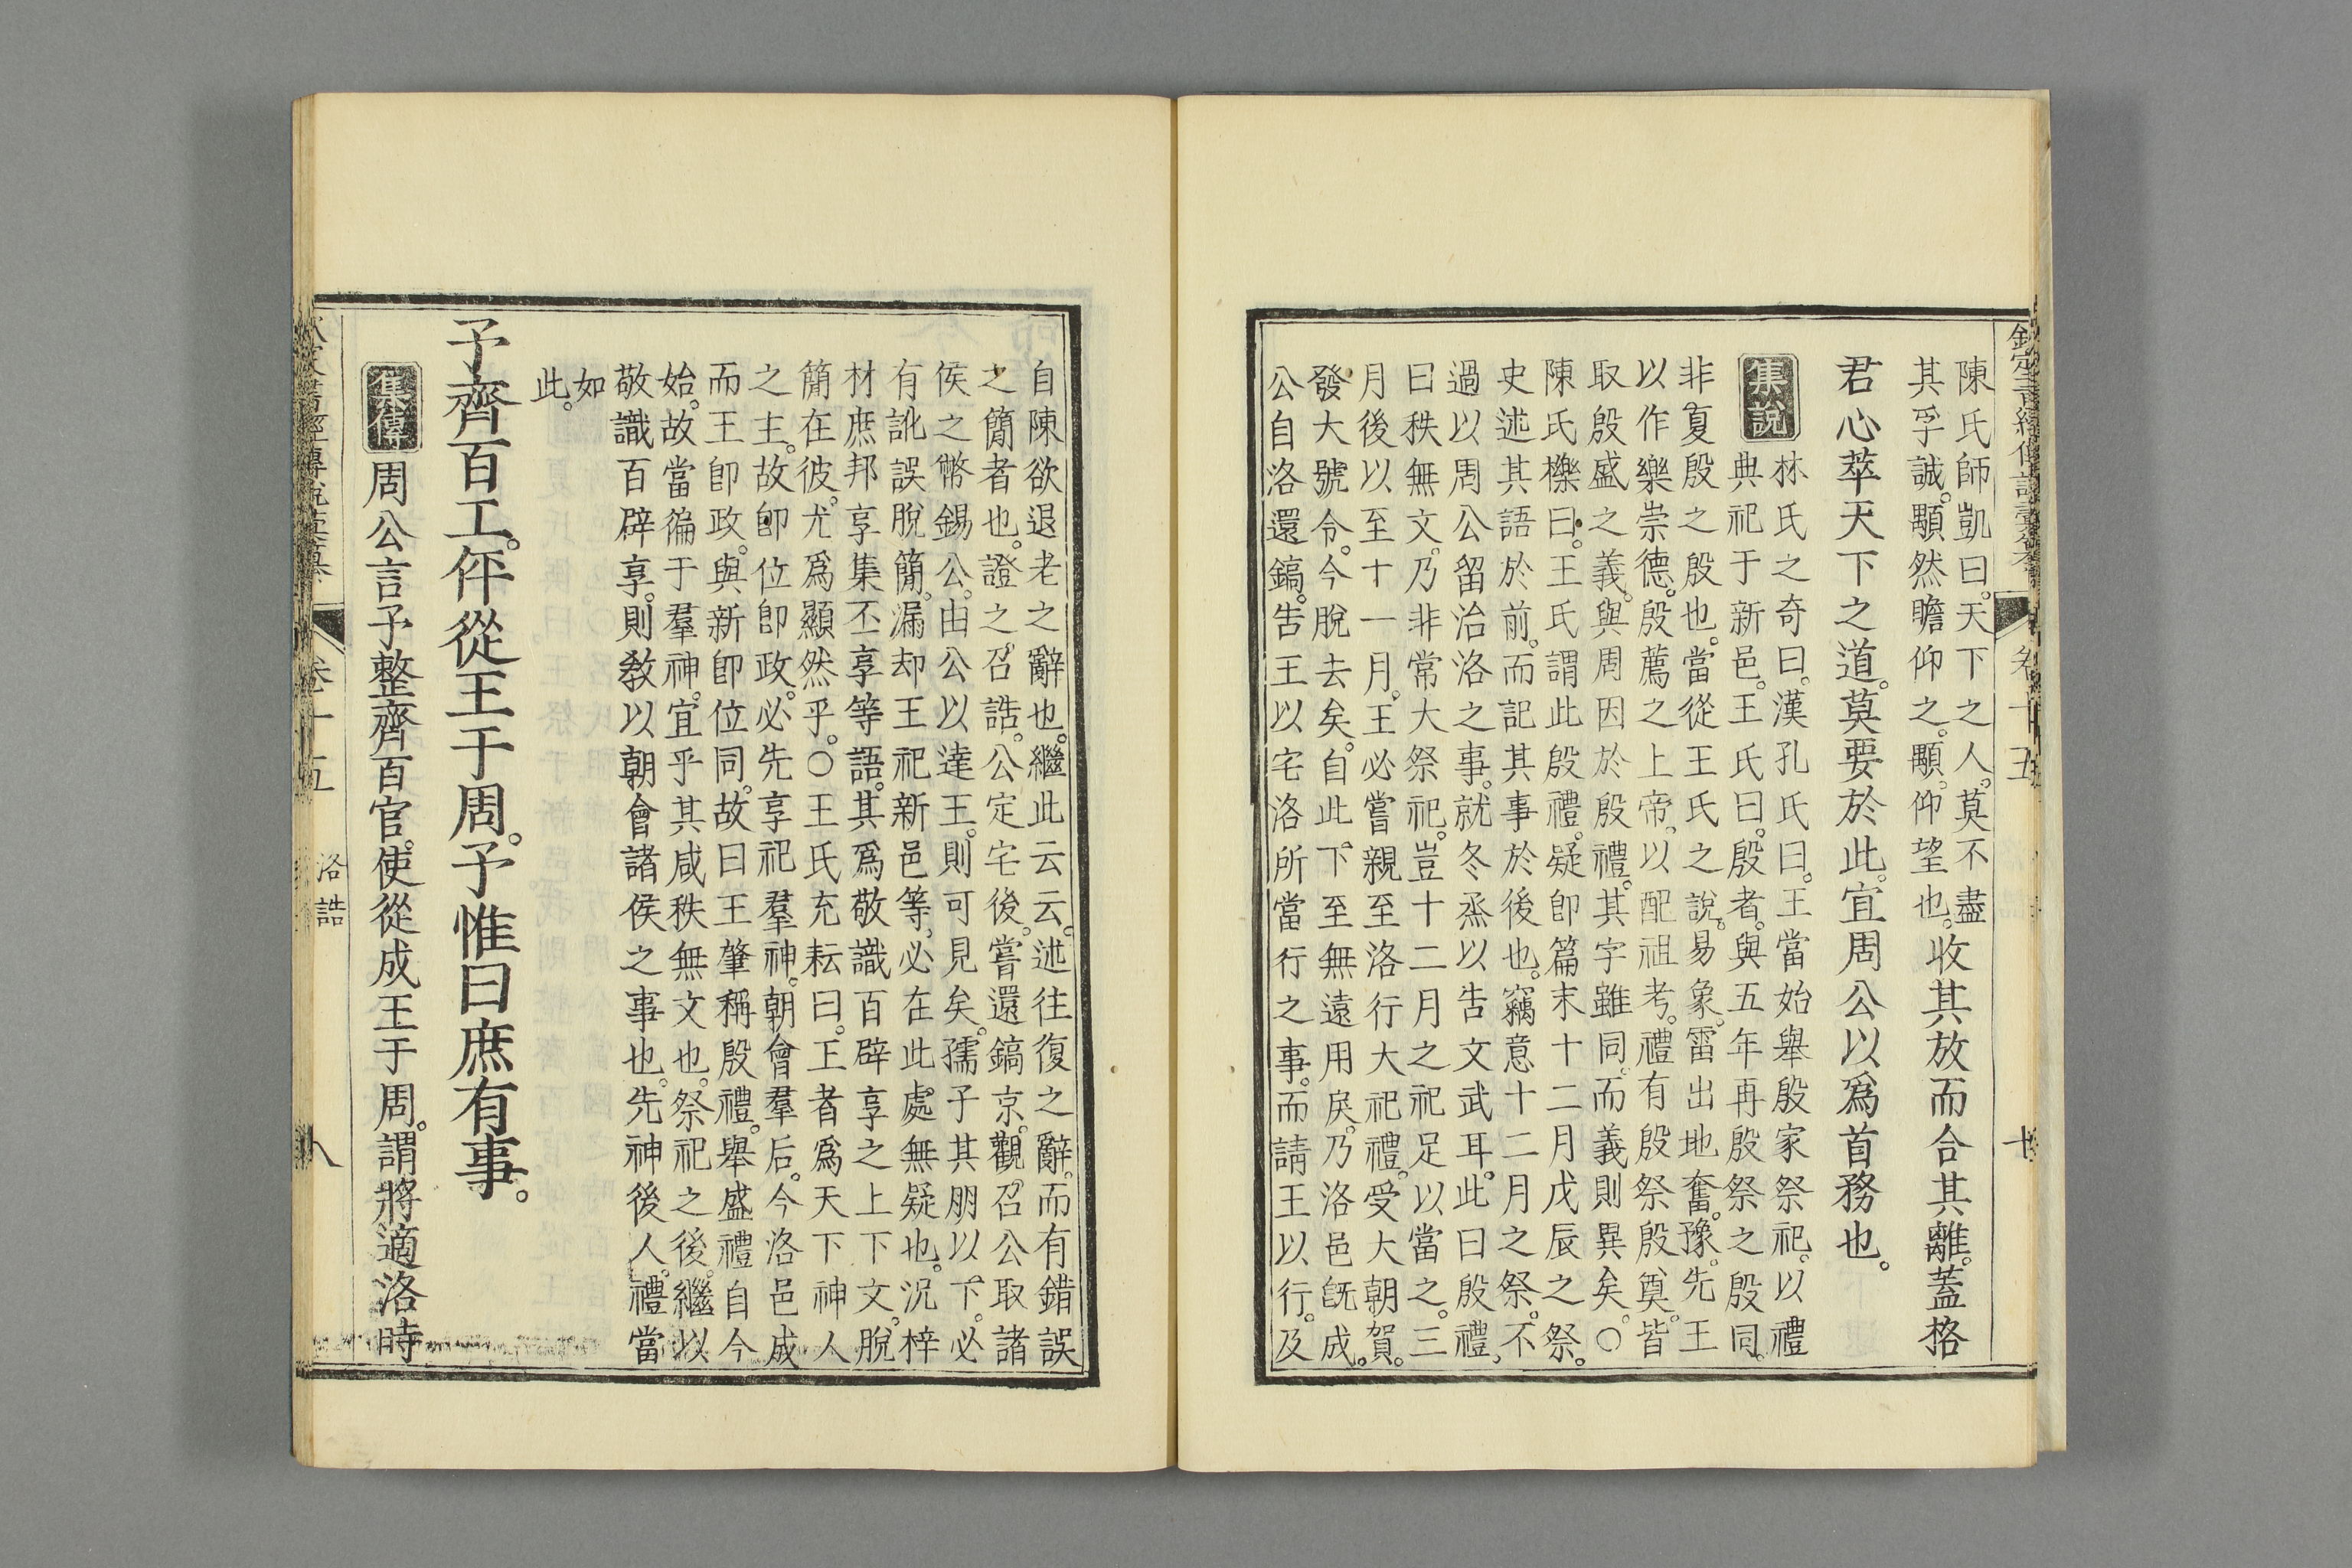 陳氏師凱曰。天下之人。莫不盡
其孚誠。顒然瞻仰之。顒。仰望也。收其放而合其離。蓋格
君心萃天下之道。莫要於此。宜周公以爲首務也。
集說
林氏之奇曰。漢孔氏曰。王當始舉殷家祭祀。以禮
典祀于新邑。王氏曰。殷者。與五年再殷祭之殷同。
非夏殷之殷也。當從王氏之說。易象。雷出地奮。豫。先王
以作樂崇德。殷薦之上帝。以配祖考。禮有殷祭殷奠。皆
取殷盛之義。與周因於殷禮。其字雖同。而義則異矣。○
陳氏櫟曰。王氏謂此殷禮。疑卽篇末十二月戊辰之祭。
史述其語於前。而記其事於後也。竊意十二月之祭。不
過以周公留治洛之事。就冬烝以告文武耳。此曰殷禮。
曰秩無文。乃非常大祭祀。豈十二月之祀足以當之。三
月後以至十一月。王必嘗親至洛行大祀禮。受大朝賀。
發大號令。今脫去矣。自此下至無遠用戾。乃洛邑旣成。
公自洛還鎬。告王以宅洛所當行之事。而請王以行。及
自陳欲退老之辭也。繼此云云。述往復之辭。而有錯誤
之簡者也。證之召誥。公定宅後。嘗還鎬京。觀召公取諸
侯之幣錫公。由公以達王。則可見矣。孺子其朋以下。必
有訛誤脫簡。漏却王祀新邑等。必在此處無疑也。況梓
材庶邦享集丕享等語。其爲敬識百辟享之上下文。脫
簡在彼。尤爲顯然乎。○王氏充耘曰。王者爲天下神人
之主。故卽位卽政。必先享祀羣神。朝會羣后。今洛邑成
而王卽政。與新卽位同。故曰王肇稱殷禮。舉盛禮自今
始。故當徧于羣神。宜乎其咸秩無文也。祭祀之後。繼以
敬識百辟享。則敎以朝會諸侯之事也。先神後人。禮當
如
此。
予齊百工。伻從王于周。予惟曰庶有事。
集傳
周公言予整齊百官。使從成王于周。謂將適洛時
卷十五
洛誥
八